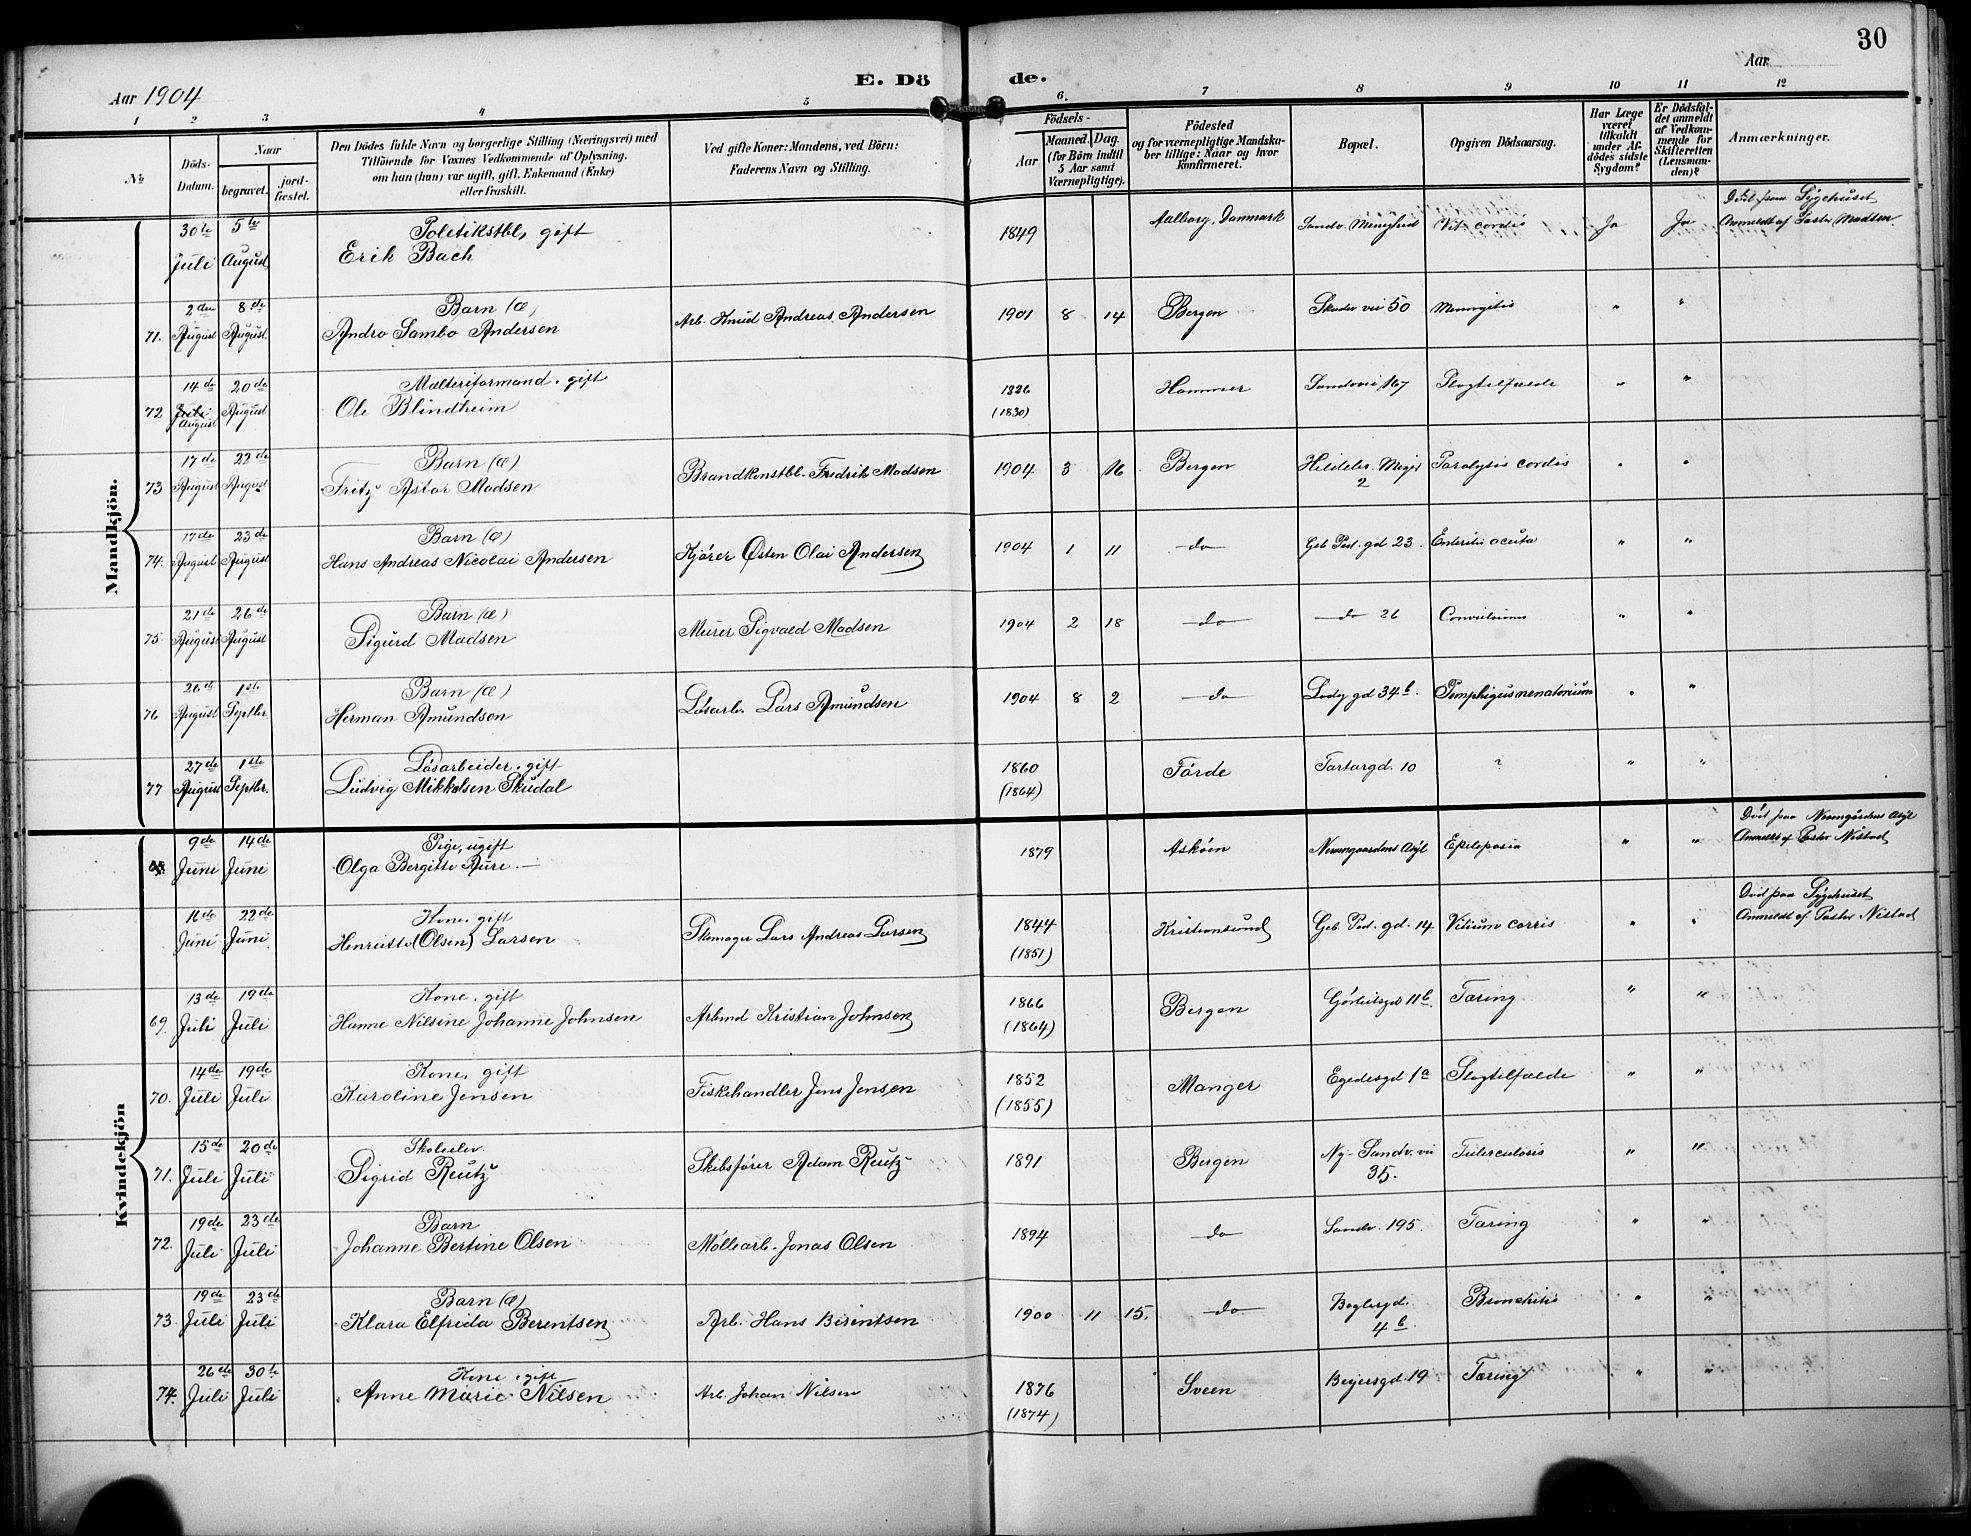 30
Aar 1904
E. Dö de.
Aar
1 2 3 4 5 6. 7 8 9 10 11 12
No
Döds-Datum.
Naar
begravet.
jord-fæstet.
Den Dödes fulde Navn og borgerlige Stilling (Næringsvei) med
Tilföiende for Voxnes Vedkommende af Oplysning,
om han (hun) var ugift, gift, Enkemand (Enke)
eller fraskilt.
Ved gifte Koner: Mandens, ved Börn:
Faderens Navn og Stilling.
Födsels-
Aar
Maaned. Dag.
(for Börn indtil
5 Aar samt
Værnepligtige).
Födested
og for værnepligtige Mandska-
ber tillige: Naar og hvor
konfirmeret.
Bopæl.
Opgiven Dödsaarsag.
Har Læge
været
tilkaldt
under Af-
dödes sidste
Sygdom?
Er Dödsfal-
det anmeldt
af Vedkom-
mende for
Skifteretten
(Lensman-
den)?
Anmærkninger.
Mandkjön.
30te Juli 5te August Politikstbl, gift Erik Bach 1849 Aalborg, Danmark Sandv. Menighed Vit. cordis Ja Ja Död paa Sygehuset Anmeldt af Pastor Madsen
71. 2den August 8de August Barn (æ) Andro Sambo Andersen Arb. Knud Andreas Andersen 1901 8 14 Bergen Skudev vei 50 Meningitis " "
72 14de Juli August 20de August Mælteriformand, gift Ole Blindheim 1826 (1830) Hammer Sandvei 167 Slagtilfælde " "
73 17de August 22de August Barn (æ) Fritz Astor Madsen Brandkonstbl. Fredrik Madsen 1904 3 16 Bergen 2 Paralysis cordis " "
74. 17de August 23de August Barn (æ) Hans Andreas Nicolai Andersen Kjører Østen Olai Andersen 1904 1 11 do Geb Ped. gd 23. Enteritis acuta " "
75. 21de August 26de August Barn (æ) Sigurd Madsen Murer Sigvald Madsen 1904 2 18 do do 26 " "
76 26de August 1ste Septbr. Barn (æ) Herman Amundsen Løsarb. Lars Amundsen 1904 8 2 do Ladeg gd 34b. Pemphigus nenatorium " "
77 27de August 1ste Septbr. Løsarbeider, gift Ludvig Mikkelsen Skudal 1860 (1864) Førde Tartargd. 10 ? " "
Kvindekjön
9de Juni 14de Juni Pige, ugift Olga Bergitte Aure 1879 Askøen Neumgaardens Asyl Epilepsia " " Död paa Neumgårdens Asyl Anmeldt af Pastor Nistad
16de Juni 22de Juni Kone, gift Henriette (Olsen) Larsen Skomager Lars Andreas Larsen 1844 (1851) Kristiansund Geb Ped. gd. 14 Vitium corris " " Död paa Sygehuset Anmeldt af Pastor Nistad
69. 13de Juli 19de Juli Kone, gift Hanne Nilsine Johanne Johnsen Arbmd Kristian Johnsen 1866 (1864) Bergen 11b. Tæring " "
70. 14de Juli 19de Juli Kone, gift Karoline Jensen Fiskehandler Jens Jensen 1852 (1855) Manger Egedesgd 1a Slagtilfælde " "
71. 15de Juli 20de Juli Skoleelev. Sigrid Reutz Skibsfører Adam Reutz 1891 Bergen Ny-Sandv. vei 35. Tuberculosis " "
72. 19de Juli 23de Juli Barn Johanne Bertine Olsen Møllearb. Jonas Olsen 1894 do Sandv. 195. Tæring " "
73. 19de Juli 23de Juli Barn (æ) Klara Elfrida Berentsen Arb. Hans Berentsen 1900 11 15. do Baglergd. 4b. Bronchitis " "
74. 26de Juli 30te Juli Kone, gift Anne Marie Nilsen Arb. Johan Nilsen 1876 (1874) Sveen Beyersgd 19 Tæring " "